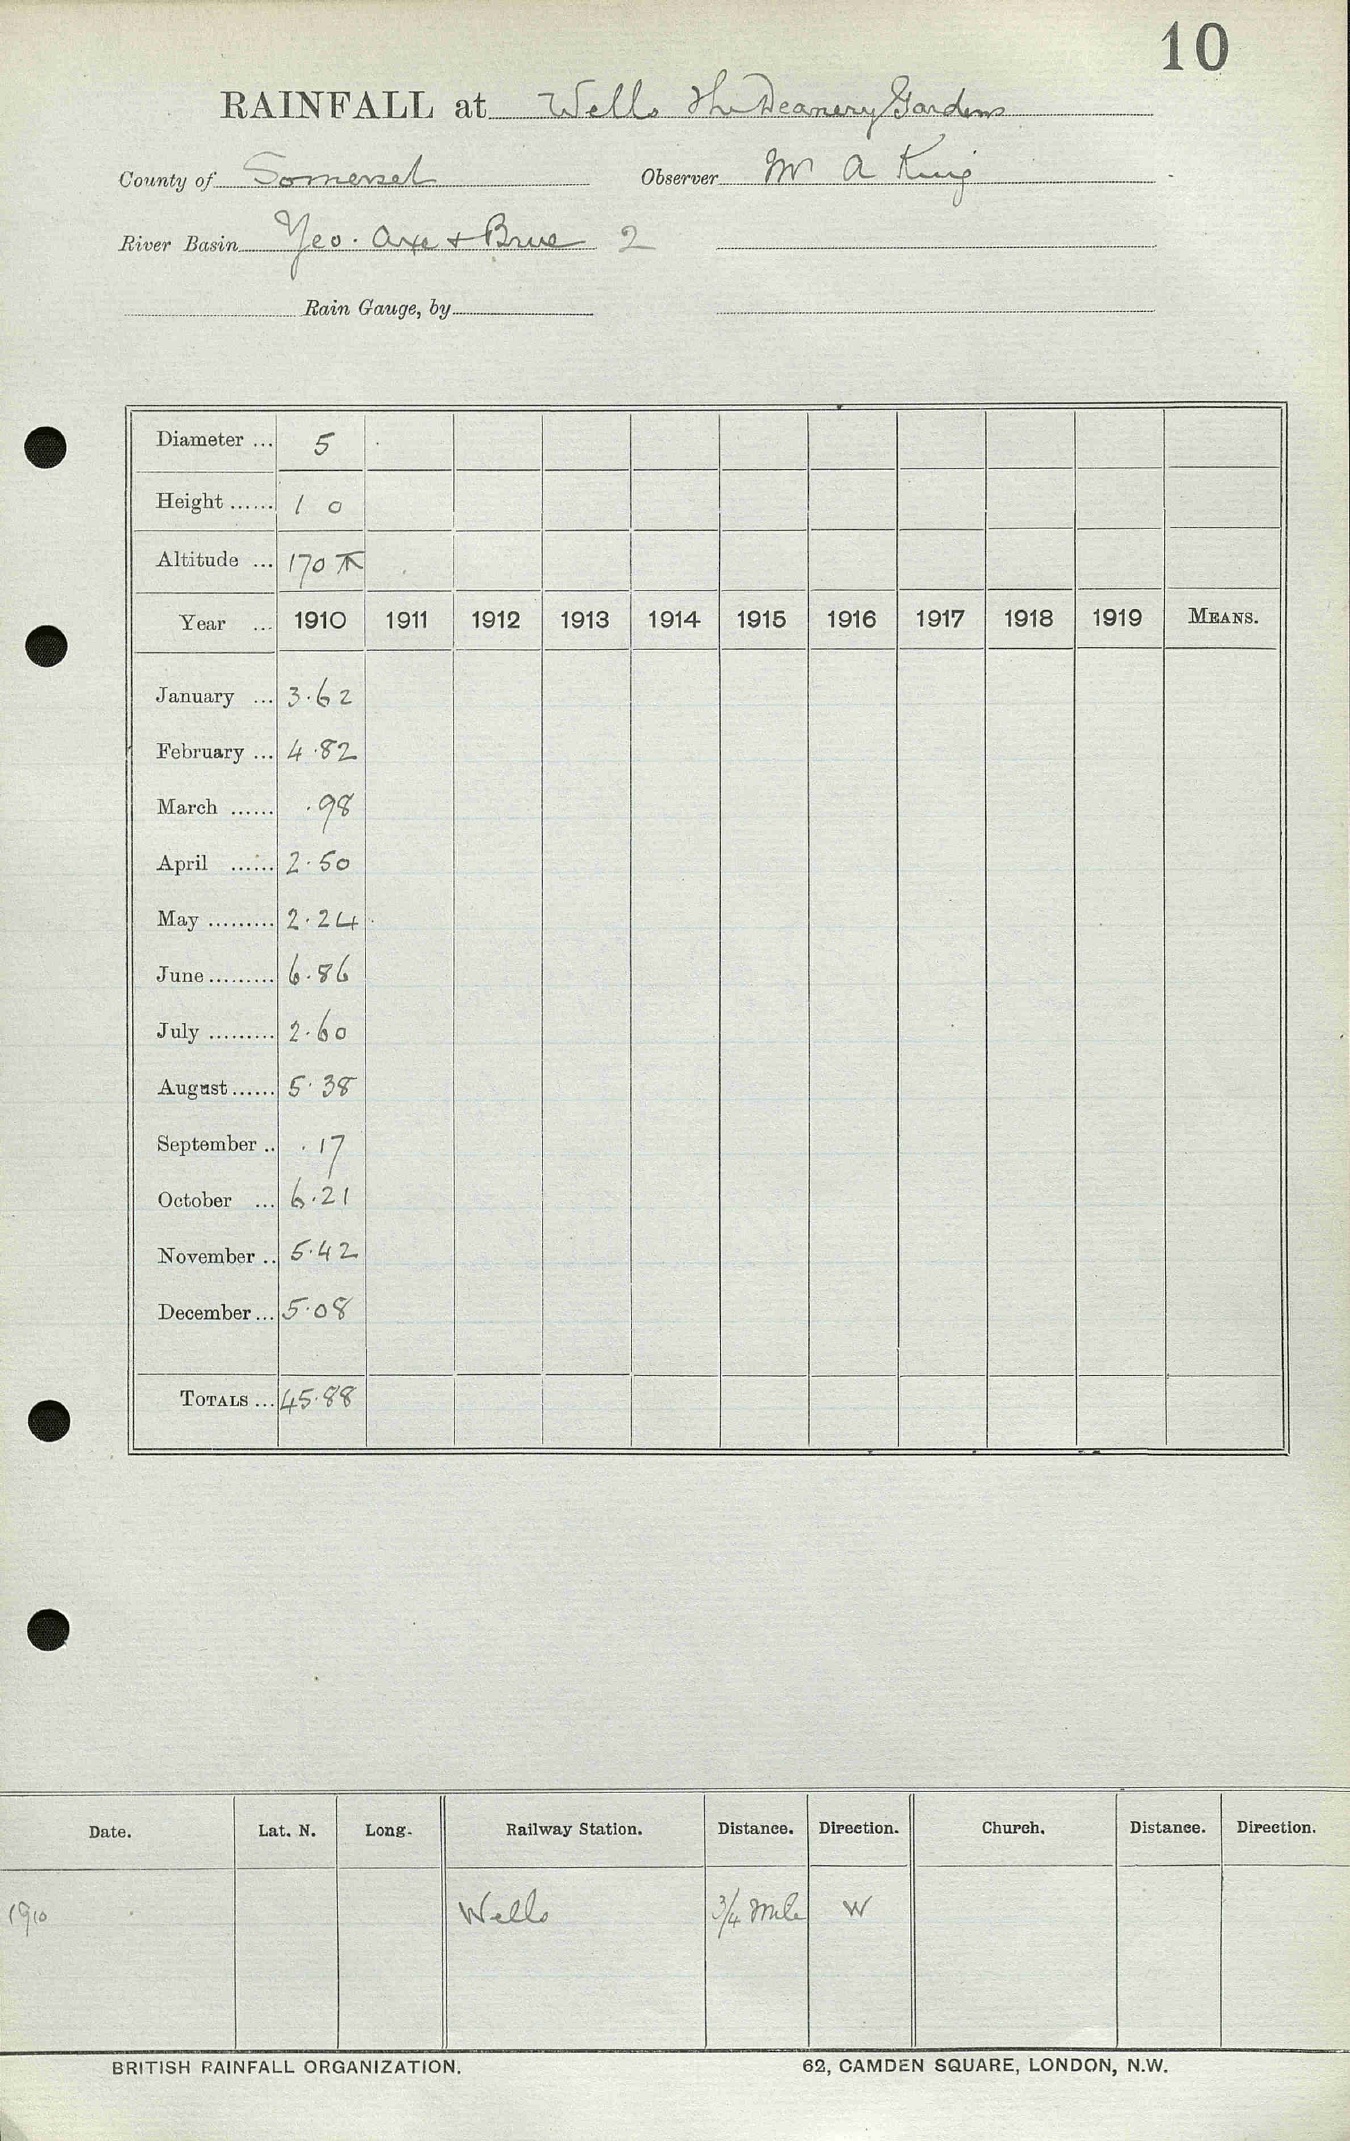 10
RAINFALL at Wells The Deanery Gardens
County of Somerset Observer Mr A King
River Basin Yeo. Axe + Brue 2
Rain Gauge, by
Diameter ... 5
Height ...... 1 0
Altitude ... 170
Year ... 1910 1911 1912 1913 1914 1915 1916 1917 1918 1919 MEANS.
January ... 3.62
February ... 4.82
March ...... .98
April ...... 2.50
May ......... 2.24
June ......... 6.86
July ......... 2.60
August ...... 5.38
September .. .17
October ... 6.21
November .. 5.42
December ... 5.08
TOTALS ... 45.88
Date. Lat. N. Long. Railway Station. Distance. Direction. Church. Distance. Direction.
1910 Wells 3/4 mile W
BRITISH RAINFALL ORGANIZATION. 62, CAMDEN SQUARE, LONDON, N.W.